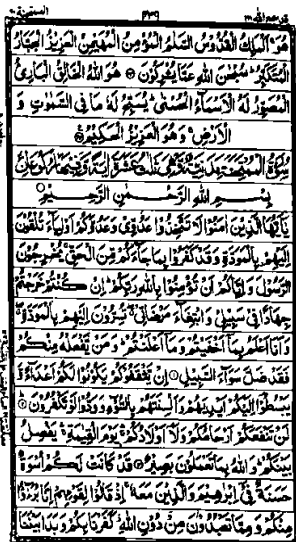 هُوَ ۚ الْمَلِكُ الْقُدُّوسُ السَّلٰمُ الْمُؤْمِنُ الْمُهَيْمِنُ الْعَزِيزُ الْجَبَّارُ
الْمُتَكَبِّرُ ۚ سُبْحٰنَ اللّٰهِ عَمَّا يُشْرِكُونَ ۞ هُوَ اللّٰهُ الْخَالِقُ الْبَارِئُ
الْمُصَوِّرُ لَهُ الْأَسْمَآءُ الْحُسْنٰى ۚ يُسَبِّحُ لَهُ مَا فِي السَّمٰوٰتِ وَ
الْأَرْضِ ۚ وَهُوَ الْعَزِيزُ الْحَكِيمُ ۞
بِسْمِ اللّٰهِ الرَّحْمٰنِ الرَّحِيْمِ
يٰٓأَيُّهَا الَّذِينَ اٰمَنُوا لَا تَتَّخِذُوا عَدُوِّي وَعَدُوَّكُمْ أَوْلِيَآءَ تُلْقُونَ
إِلَيْهِمْ بِالْمَوَدَّةِ وَقَدْ كَفَرُوا بِمَا جَآءَكُمْ مِّنَ الْحَقِّ ۚ يُخْرِجُونَ
الرَّسُولَ وَإِيَّاكُمْ أَنْ تُؤْمِنُوا بِاللّٰهِ رَبِّكُمْ ۚ إِنْ كُنْتُمْ خَرَجْتُمْ
جِهَادًا فِي سَبِيلِي وَابْتِغَآءَ مَرْضَاتِي ۖ تُسِرُّونَ إِلَيْهِمْ بِالْمَوَدَّةِ ۖ
وَأَنَا أَعْلَمُ بِمَآ أَخْفَيْتُمْ وَمَآ أَعْلَنْتُمْ ۚ وَمَنْ يَّفْعَلْهُ مِنْكُمْ
فَقَدْ ضَلَّ سَوَآءَ السَّبِيلِ ۞ إِنْ يَّثْقَفُوكُمْ يَكُونُوا لَكُمْ أَعْدَآءً وَّ
يَبْسُطُوٓا إِلَيْكُمْ أَيْدِيَهُمْ وَأَلْسِنَتَهُمْ بِالسُّوٓءِ وَوَدُّوا لَوْ تَكْفُرُونَ ۞
لَنْ تَنْفَعَكُمْ أَرْحَامُكُمْ وَلَآ أَوْلَادُكُمْ ۚ يَوْمَ الْقِيٰمَةِ ۚ يَفْصِلُ
بَيْنَكُمْ ۚ وَاللّٰهُ بِمَا تَعْمَلُونَ بَصِيرٌ ۞ قَدْ كَانَتْ لَكُمْ أُسْوَةٌ
حَسَنَةٌ فِيٓ إِبْرٰهِيمَ وَالَّذِينَ مَعَهُ ۚ إِذْ قَالُوا لِقَوْمِهِمْ إِنَّا بُرَءٰٓؤُا
مِنْكُمْ وَمِمَّا تَعْبُدُونَ مِنْ دُونِ اللّٰهِ كَفَرْنَا بِكُمْ وَبَدَا بَيْنَنَا